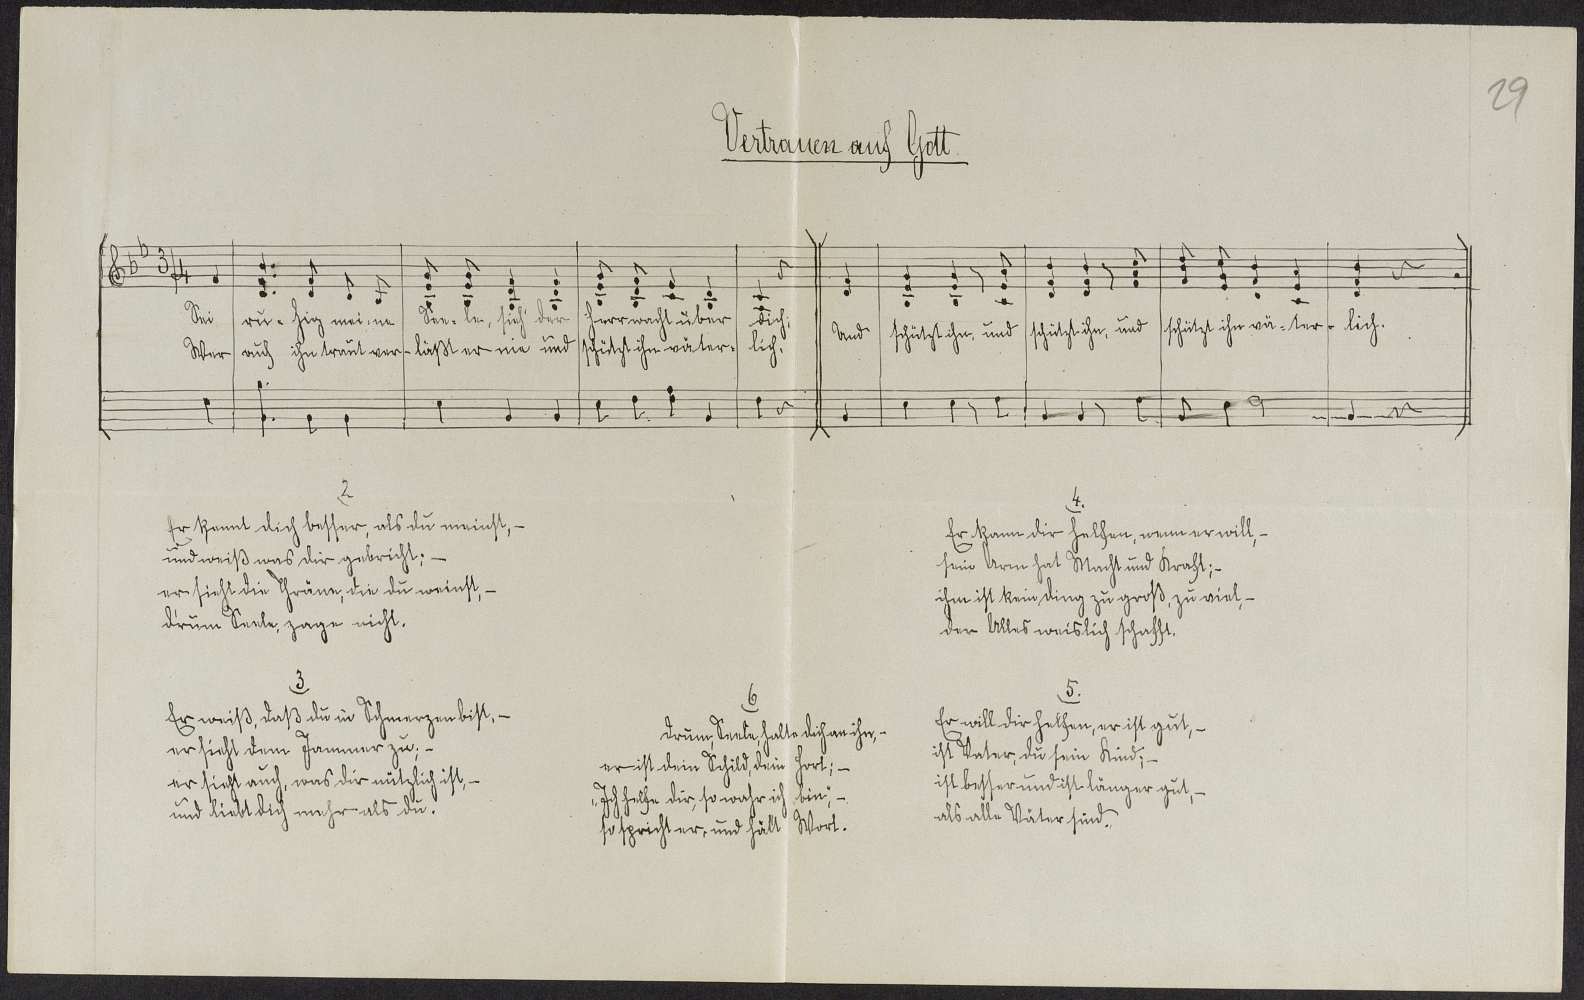 29
Vertrauen auf Gott.
3/4
Sei ru-hig mei-ne See-le, sieh' der Herr wacht über dich;
Wer auf ihn traut ver-läßt er nie und schützt ihn väter-lich.
Und schützt ihn, und schützt ihn, und schützt ihn vä-ter-lich.
2
Er kennt dich besser, als du meinst,-
und weiß was dir gebricht;-
er sieht die Thräne, die du weinst,-
d'rum Seele, zage nicht.
3
Er weiß, daß du in Schmerzen bist,-
er sieht dem Jammer zu;-
er sieht auch, was dir nützlich ist,-
und liebt dich mehr als du.
4.
Er kann dir helfen, wenn er will,-
sein Arm hat Macht und Kraft;-
ihm ist kein Ding zu groß, zu viel,-
der Alles weislich schafft.
5.
Er will dir helfen, er ist gut,-
ist Vater, du sein Kind;-
ist besser und ist länger gut,-
als alle Väter sind.
6
Drum, Seele, halte dich an ihn,-
er ist dein Schild, dein Hort;-
"Ich helfe dir, so wahr ich bin",-
so spricht er, und hält Wort.